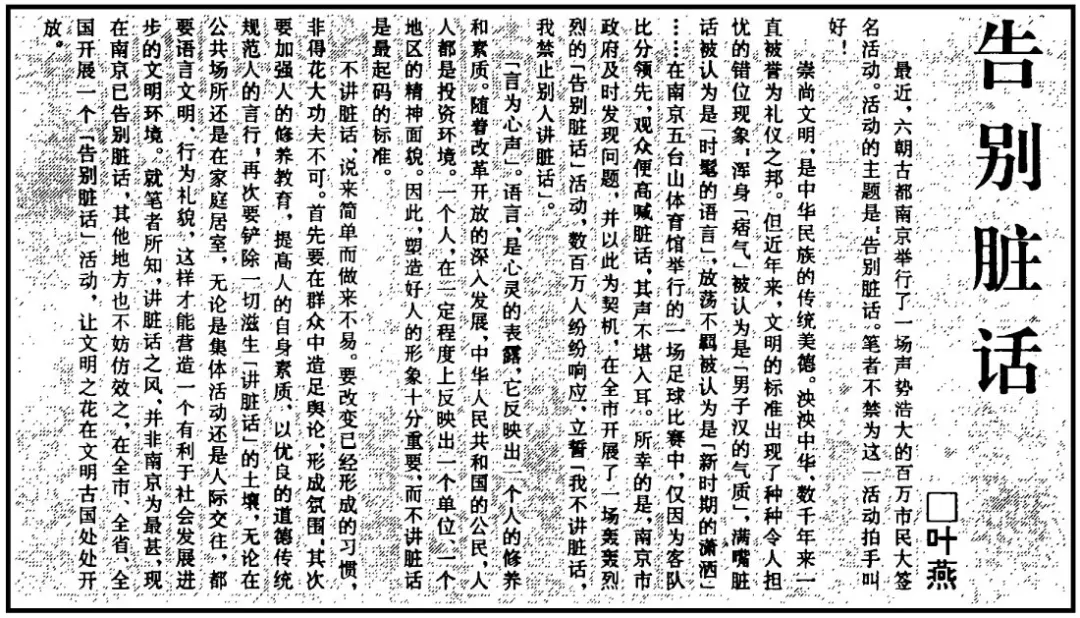 告别脏话
□叶燕
最近，六朝古都南京举行了一场声势浩大的百万市民大签
名活动。活动的主题是：告别脏话。笔者不禁为这一活动拍手叫
好！
崇尚文明，是中华民族的传统美德。泱泱中华，数千年来一
直被誉为礼仪之邦。但近年来，文明的标准出现了种种令人担
忧的错位现象，浑身「痞气」被认为是「男子汉的气质」，满嘴脏
话被认为是「时髦的语言」，放荡不羁被认为是「新时期的潇洒」
……在南京五台山体育馆举行的一场足球比赛中，仅因为客队
比分领先，观众便高喊脏话，其声不堪入耳。所幸的是，南京市
政府及时发现问题，并以此为契机，在全市开展了一场轰轰烈
烈的「告别脏话」活动，数百万人纷纷响应，立誓「我不讲脏话，
我禁止别人讲脏话」。
「言为心声」。语言，是心灵的表露，它反映出一个人的修养
和素质。随着改革开放的深入发展，中华人民共和国的公民，人
人都是投资环境。一个人，在一定程度上反映出一个单位、一个
地区的精神面貌。因此，塑造好人的形象十分重要，而不讲脏话
是最起码的标准。
不讲脏话，说来简单而做来不易。要改变已经形成的习惯，
非得花大功夫不可。首先要在群众中造足舆论，形成氛围，其次
要加强人的修养教育，提高人的自身素质，以优良的道德传统
规范人的言行，再次要铲除一切滋生「讲脏话」的土壤，无论在
公共场所还是在家庭居室，无论是集体活动还是人际交往，都
要语言文明、行为礼貌，这样才能营造一个有利于社会发展进
步的文明环境。就笔者所知，讲脏话之风，并非南京为最甚，现
在南京已告别脏话，其他地方也不妨仿效之，在全市、全省、全
国开展一个「告别脏话」活动，让文明之花在文明古国处处开
放。